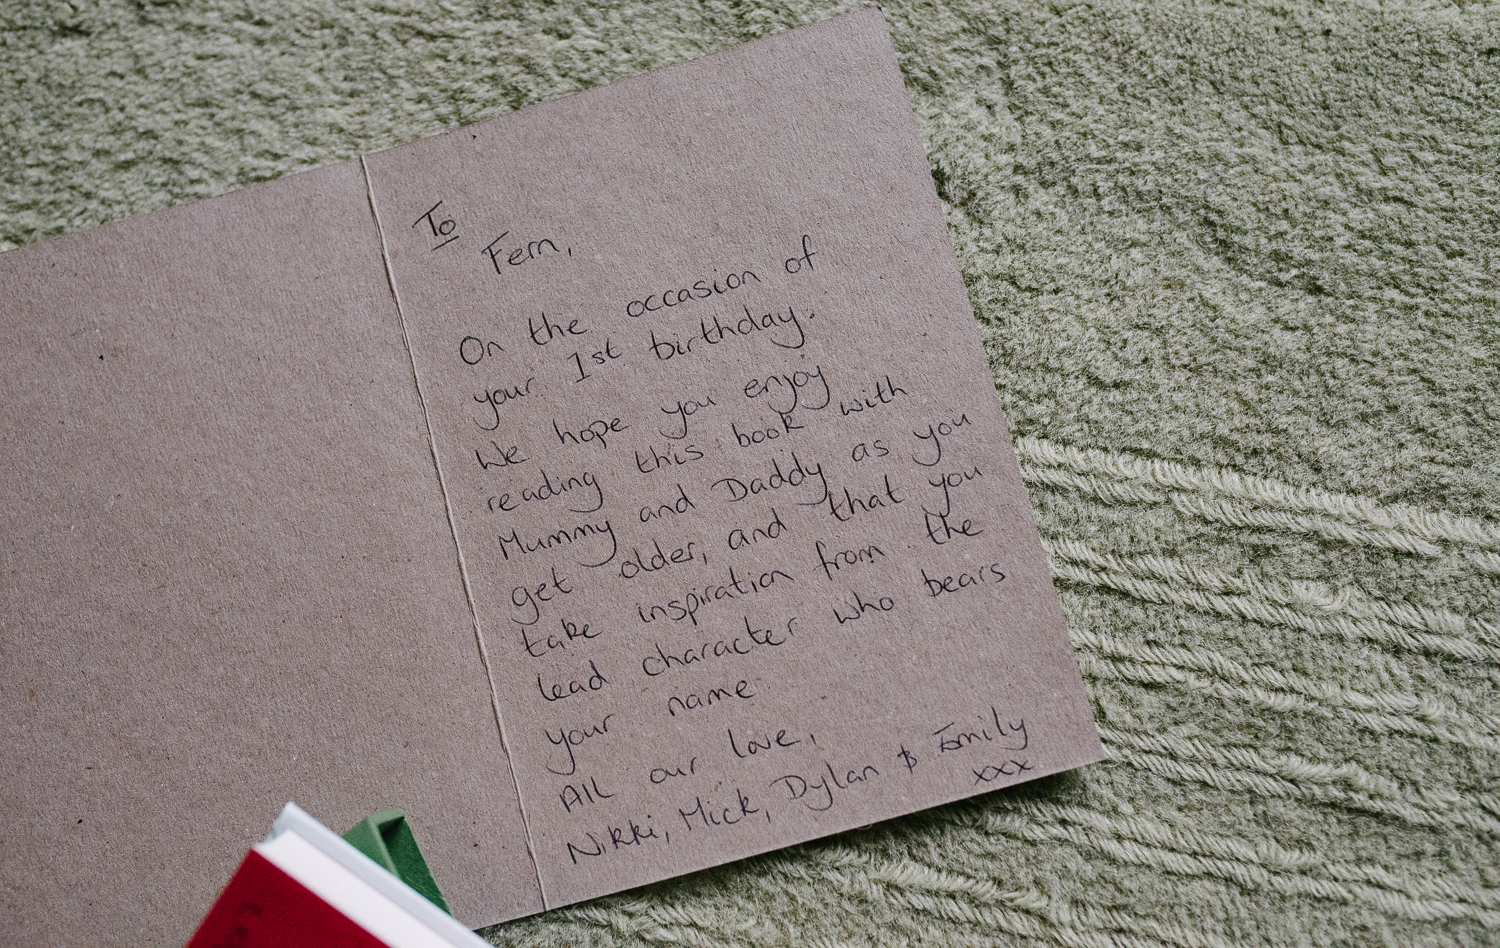 To
Fern,
On the occasion of
your 1st birthday.
We hope you enjoy
reading this book with
Mummy and Daddy as you
get older, and that you
take inspiration from the
lead character who bears
your name
All our love,
Nikki, Mick, Dylan & Emily
xxx